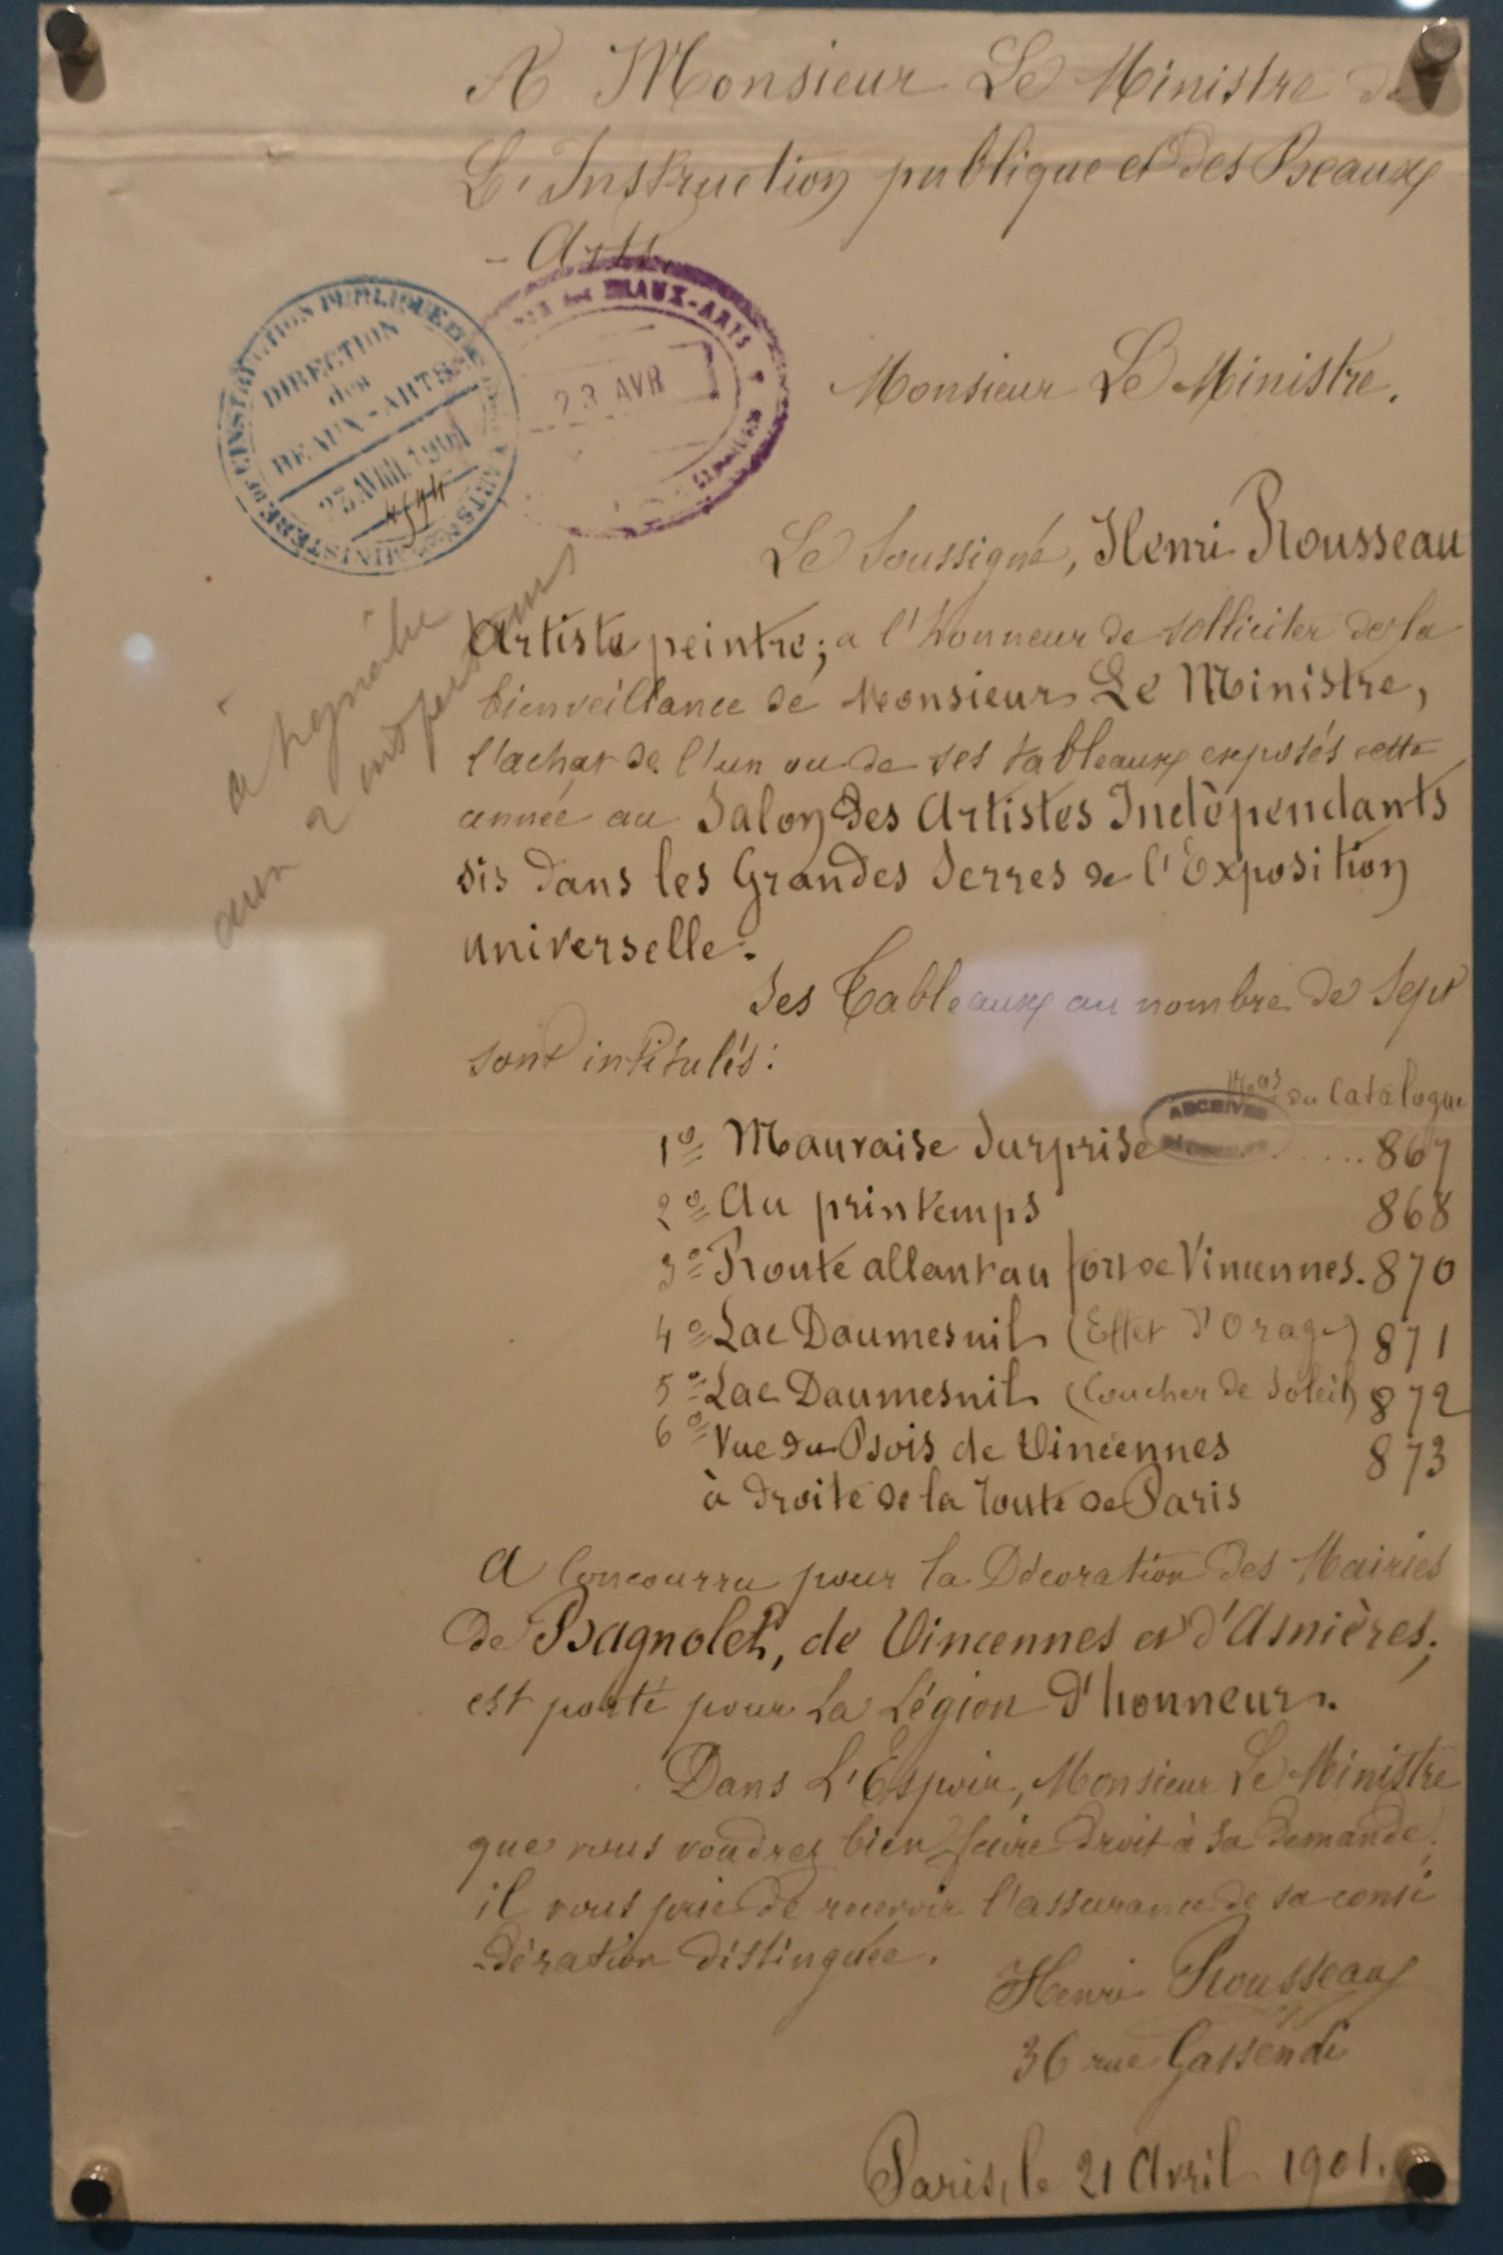 A Monsieur Le Ministre de
L'Instruction publique et des Beaux
- Arts.
MINISTERE DE L'INSTRUCTION PUBLIQUE ET DES BEAUX ARTS
DIRECTION
des
BEAUX-ARTS
23 AVRIL 1901
des BEAUX-ARTS
23 AVR
Monsieur Le Ministre.
Le Soussigné, Henri Rousseau
Artiste peintre; a l'honneur de solliciter de la
bienveillance de Monsieur Le Ministre,
l'achat de l'un ou de ses tableaux exposés cette
année au Salon des Artistes Indépendants
sis dans les Grandes Serres de l'Exposition
universelle.
Ses Tableaux au nombre de Sept
sont intitulés:
Nos du Catalogue
ARCHIVES
1º Mauvaise Surprise ..... 867
2º Au printemps 868
3º Route allant au fort de Vincennes. 870
4º Lac Daumesnil (Effet d'Orage) 871
5º Lac Daumesnil (Coucher de Soleil) 872
6º Vue du Bois de Vincennes 873
à droite de la route de Paris
A Concourru pour la Décoration des Mairies
de Bagnolet, de Vincennes et d'Asnières;
est porté pour La Légion d'honneur.
Dans L'Espoir, Monsieur Le Ministre
que vous voudrez bien faire droit à sa demande,
il vous prie de recevoir l'assurance de sa consi
-dération distinguée.
Henri Rousseau
36 rue Gassendi
Paris, le 21 Avril 1901.